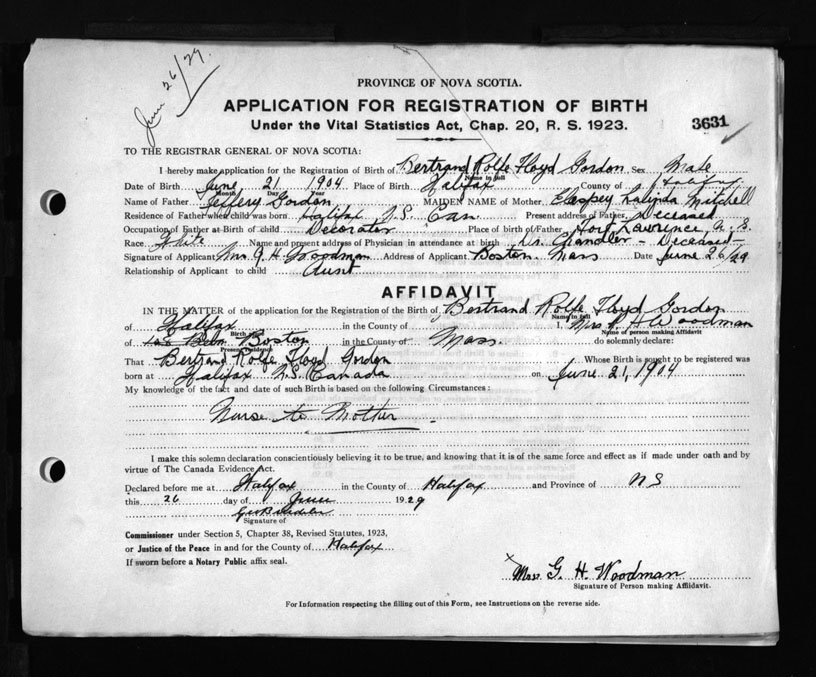 June 26/29.
PROVINCE OF NOVA SCOTIA.
APPLICATION FOR REGISTRATION OF BIRTH
Under the Vital Statistics Act, Chap. 20, R. S. 1923.
3631
TO THE REGISTRAR GENERAL OF NOVA SCOTIA:
I hereby make application for the Registration of Birth of Bertrand Rolfe Floyd Gordon Sex Male
Name in full
Date of Birth June 21 1904 Place of Birth Halifax County of Halifax
Month Day Year
Name of Father Jeffery Gordon MAIDEN NAME of Mother Kalinda Mitchell
Residence of Father when child was born Halifax N.S. Can Present address of Father, Deceased
Occupation of Father at Birth of child Decorator Place of birth of Father Port Lawrence, N.S.
Race White Name and present address of Physician in attendance at birth Dr. Chandler - Deceased -
Signature of Applicant Mrs. G. H. Woodman Address of Applicant Boston. Mass Date June 26/29
Relationship of Applicant to child Aunt
AFFIDAVIT
IN THE MATTER of the application for the Registration of the Birth of Bertrand Rolfe Floyd Gordon
Name in full
of Halifax in the County of I, Mrs G H Woodman
Birth place Name of person making Affidavit
of Boston in the County of Mass. do solemnly declare:
Present residence
That Bertrand Rolfe Floyd Gordon Whose Birth is sought to be registered was
born at Halifax N.S. Canada on June 21, 1904
My knowledge of the fact and date of such Birth is based on the following Circumstances:
Nurse to Mother -
I make this solemn declaration conscientiously believing it to be true, and knowing that it is of the same force and effect as if made under oath and by
virtue of The Canada Evidence Act.
Declared before me at Halifax in the County of Halifax and Province of N S
this 26 day of June 1929
Signature of
Commissioner under Section 5, Chapter 38, Revised Statutes, 1923,
or Justice of the Peace in and for the County of Halifax
If sworn before a Notary Public affix seal.
x Mrs. G. H. Woodman
Signature of Person making Affidavit.
For Information respecting the filling out of this Form, see Instructions on the reverse side.